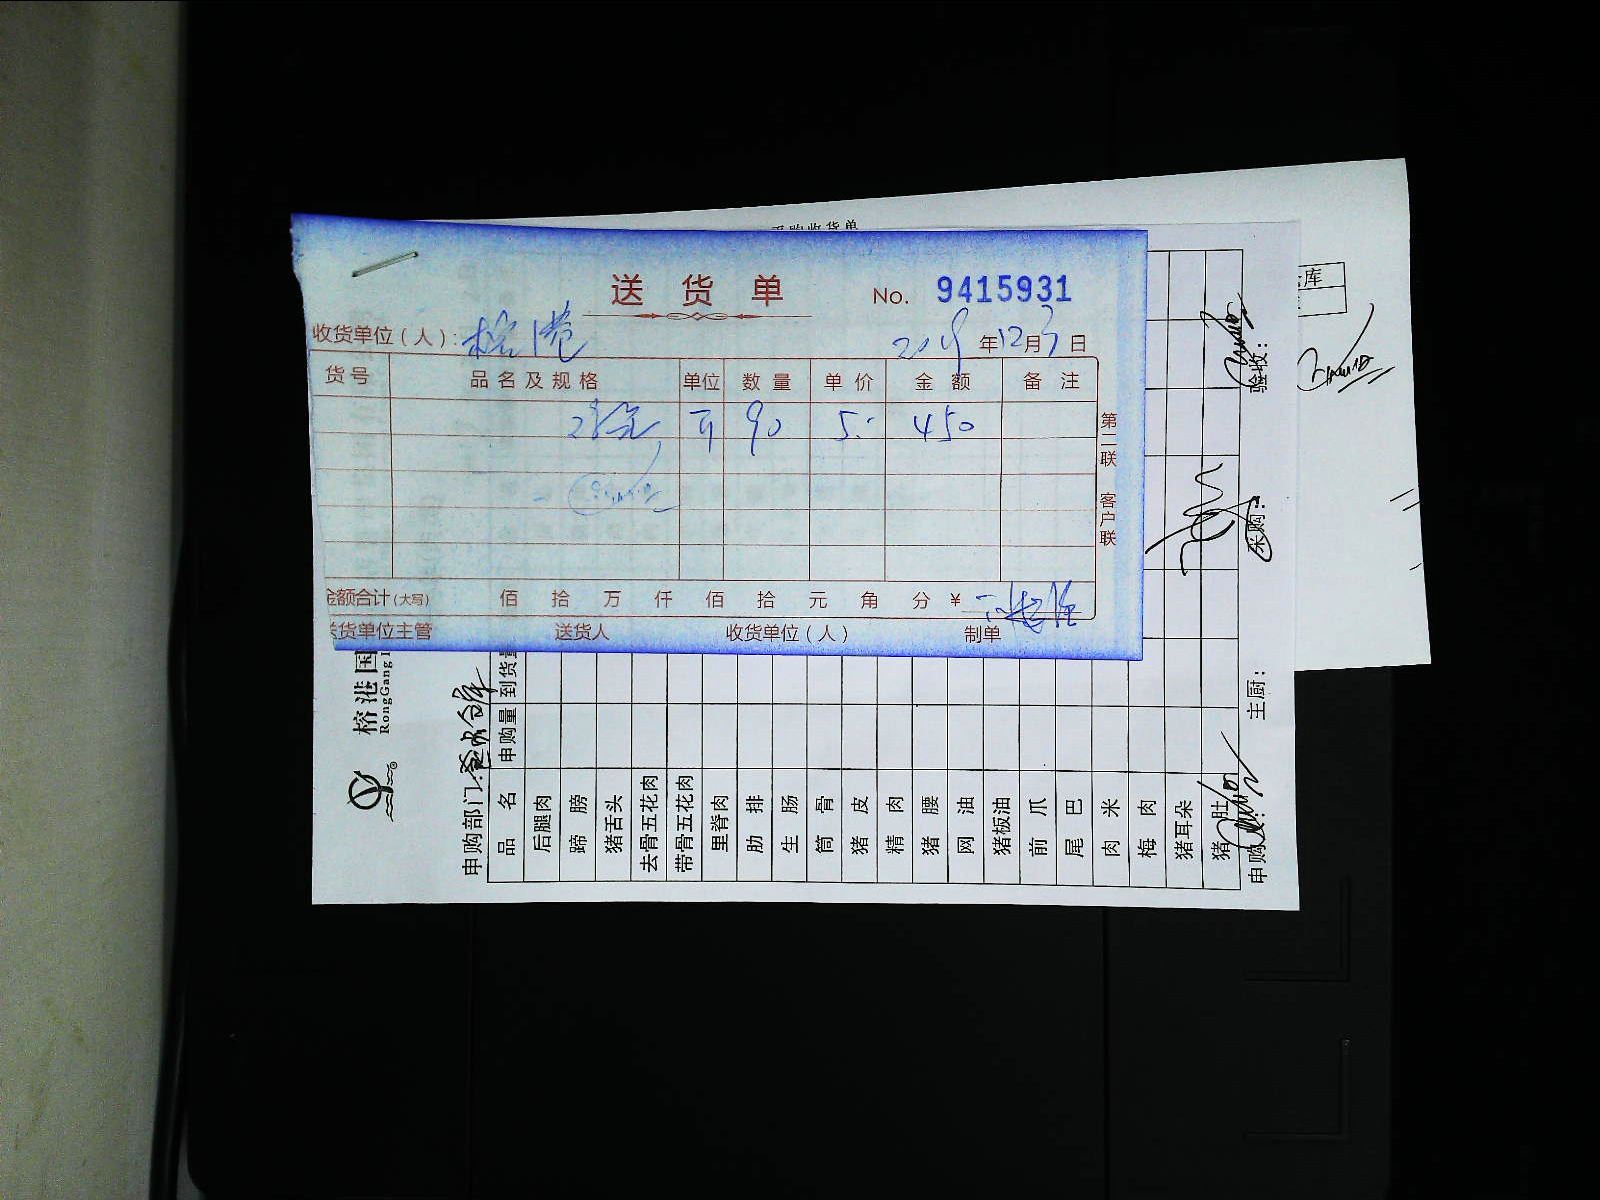 采购收货单
送货单
No. 9415931
收货单位(人): 榕港
2019年12月3日
货号 品名及规格 单位 数量 单价 金额 备注
斤 90 5.- 450
第二联 客户联
金额合计(大写) 佰 拾 万 仟 佰 拾 元 角 分 ¥
送货单位主管 送货人 收货单位(人) 制单
库
榕港国
RongGang I
申购部门:
品名 申购量 到货量
后腿肉
蹄膀
猪舌头
去骨五花肉
带骨五花肉
里脊肉
肋排
生肠
筒骨
猪皮
精肉
猪腰
网油
猪板油
前爪
尾巴
肉米
梅肉
猪耳朵
猪肚
申购: 主厨: 采购: 验收: